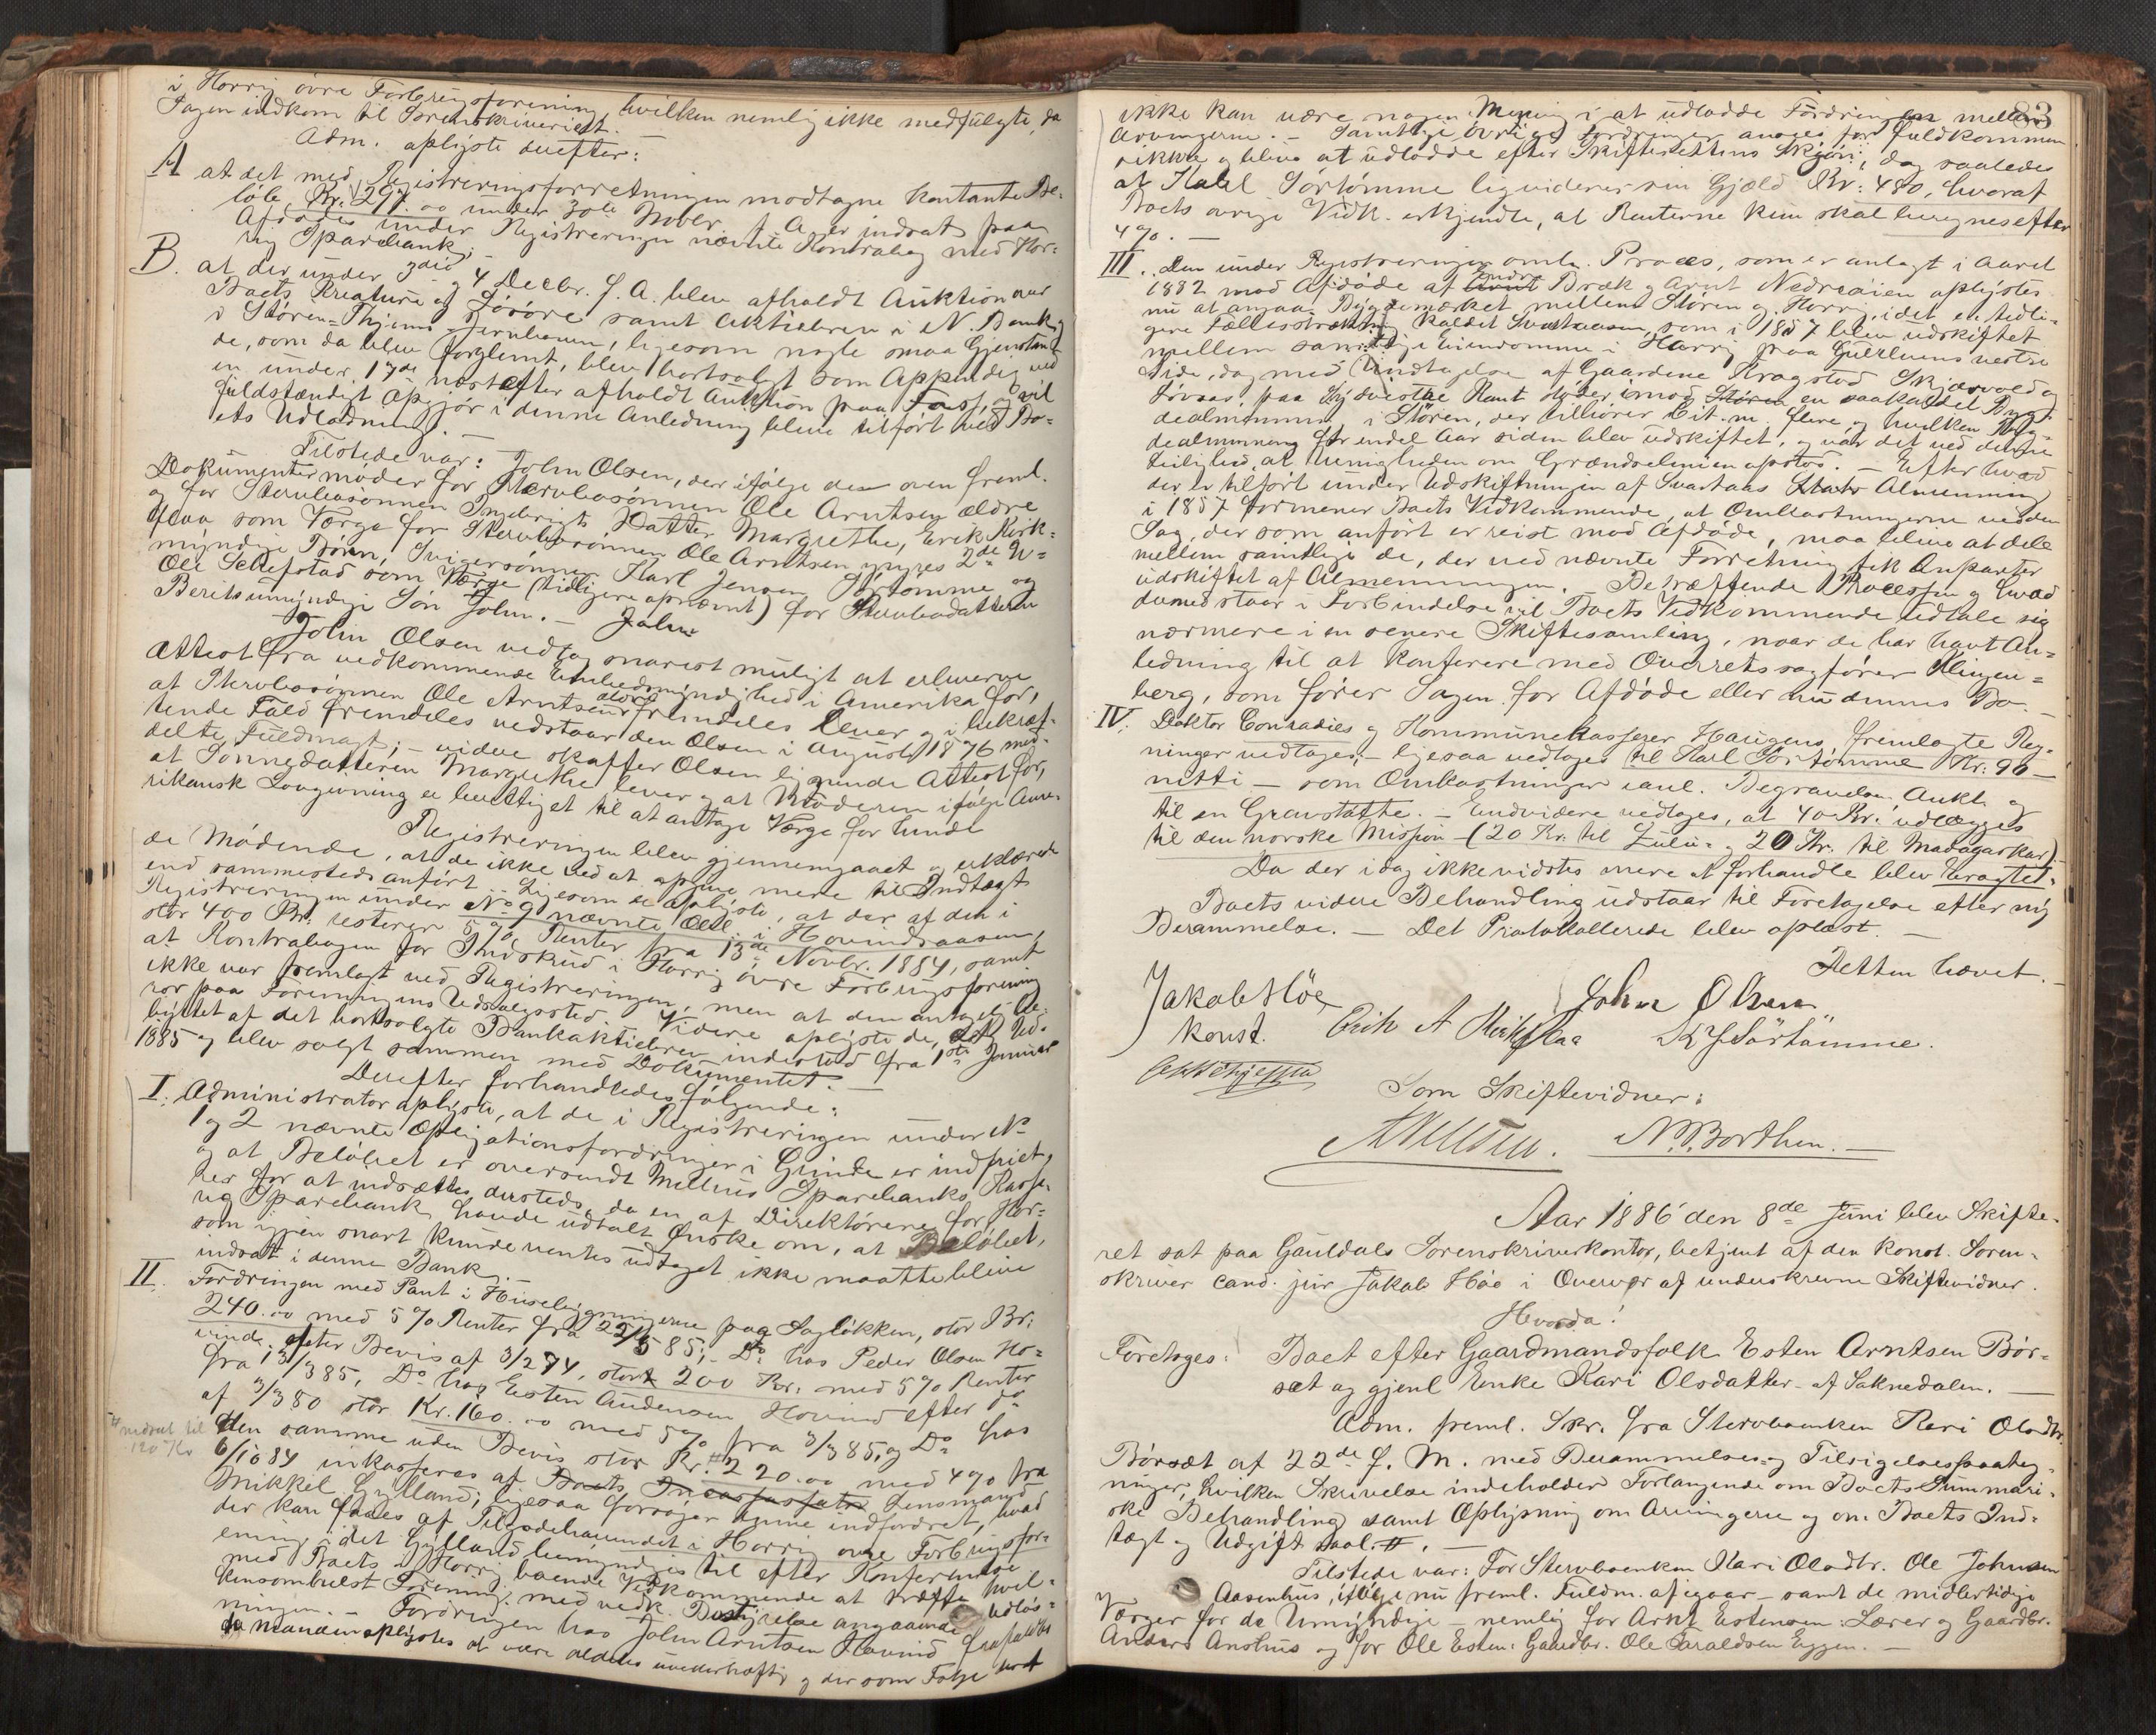 i Horrig øvre Forbrugsforening, hvilken nemlig ikke medfulgte, da
Sagen indkom til Sorenskriveriet. —
Adm. oplyste derefter:
A at det med Registreringsforretningen modtagne kontante Be-
løb Kr. 297.00 under 30te Novbr. f. A. er indsat paa
Afdødes under Registreringen nævnte Kontrabog med Hor-
rig Sparebank;
B. at der under 3die og 4 Decbr. f. A. blev afholdt Auktion over
Boets Kreature og Løsøre samt Aktiebrev i N. Bank og
i Støren-Thjems Jernbanen, ligesom nogle smaa Gjenstan-
de, som da blev forglemt, blev bortsolgt som Appendix ved
en under 17de næstefter afholdt Auktion paa Foss, og vil
fuldstændigt Opgjør i denne Anledning blive tilført ved Bo-
ets Udlodning. —
Tilstede var: John Olsen, der ifølge den oven freml.
Dokumenter møder for Stervbosønnen Ole Arntsen ældre
og for Stervbosønnen Ingebrigts Datter Margrethe, Erik Kirk-
flaa som Værge for Stervbosønnen Ole Arntsen yngres 2de U-
myndige Børn, Svigersønnen Karl Jensen Sørtømme og
Ole Schefstad som Værge (tidligere opnævnt) for Stervbodatteren
Berits umyndige Søn John. — John
John Olsen vedtog snarest muligt at erhverve
Attest fra vedkommende Embedsmyndighed i Amerika for,
at Stervbosønnen Ole Arntsen ældre fremdeles lever og i bekræf-
tende Fald fremdeles vedstaar den Olsen i August 1876 med-
delte Fuldmagt; — videre skaffer Olsen lignende Attest for,
at Sønnedatteren Margrethe lever og at Moderen ifølge Ame-
rikansk Lovgivning er berettiget til at antage Værge for hende
Registreringen blev gjennemgaaet og erklærede
de Mødende, at de ikke ved at opgive mere til Indtægt
end sammesteds anført. — Ligesom de oplyste, at der af den i
Registreringen under No 9 nævnte Obl. i Hovindsaasen,
stor 400 Kr. resterer 5% Renter fra 13de Novbr. 1884, samt
at Kontrabogen for Indskud i Horrig øvre Forbrugsforening
ikke var fremlagt ved Registreringen, men at den antagelig be-
ror paa Foreningens Udsalgssted. Videre oplyste de, at Ud-
byttet af det bortsolgte Bankaktiebrev indestod fra 1ste Januar
1885 og blev solgt sammen med Dokumentet. —
Derefter forhandledes følgende:
I. Administrator oplyste, at de i Registreringen under No
1 og 2 nævnte Obligationsfordringer i Grinde er indfriet,
og at Beløbet er oversendt Melhus Sparebanks Kasse-
rer for at indsættes dersteds, da en af Direktørerne for Hor-
rig Sparebank havde udtalt Ønske om, at Beløbet,
som igjen snart kunde ventes udtaget ikke maatte blive
indsat i denne Bank.
II. Fordringen med Pant i Huseligningerne paa Sagløkken, stor Kr:
240.00 med 5% Renter fra 22/5 85; — Do hos Peder Olsen Ho-
vind, efter Bevis af 3/2 74, stort 200 Kr. med 5% Renter
fra 13/3 85, Do hos Esten Andersen Hovind efter do
af 3/3 80 stor Kr. 160.00 med 5% fra 3/3 85, og Do hos
# nedsat til
120 Kr
den samme uden Bevis stor Kr. # 220.00 med 4% fra
6/10 84 inkasseres af Boets Incassasator Lensmand
Mikkel Gylland; ligesaa forsøges denne indfordret, hvad
der kan faaes af Tilgodehavendet i Horrig øvre Forbrugsfor-
ening, idet Gylland bemyndiges til efter Konference
med Boets i Horrig boende Vedkommende at træffe hvil-
kensomhelst Forening med vedk. Bestyrelse angaaende Udløs-
ningen. — Fordringen hos John Arntsen Hovind frafaldtes
da Manden oplystes at være aldeles uvederhæftig og der som Følge heraf
83
ikke kan være nogen Mening i at udlodde Fordringen mellem
Arvingerne. — Samtlige øvrige Fordringer ansees for fuldkommen
sikkre og blive at udlodde efter Skifterettens Skjøn; dog saaledes
at Karl Sørtømme liqviderer sin Gjæld Kr: 480, hvoraf
Boets øvrige Vedk. erkjendte, at Renterne kun skal beregnes efter
4%. —
III. Den under Registreringen omh. Proces, som er anlagt i Aaret
1882 mod Afdøde af Endre Bræk og Arnt Nedreøien oplystes
nu at angaa Byggemærket mellem Støren og Horrig, idet en tidli-
gere Fællesstrækning kaldet Svartaasen, som i 1857 blev udskiftet
mellem samtlige Eiendomme i Horrig paa Gulelvens vestre
Side, dog med Undtagelse af Gaardene Kragstad Skjærvold og
Løvaas, paa Sydvestre Kant støder imod Støren en saakaldet Byg-
dealmenning i Støren, der tilhører Eit. m. flere og hvilken Byg-
dealmenning for endel Aar siden blev udskiftet, og var det ved denne
Leilighed, at Uenigheden om Grændselinien opstod. — Efter hvad
der er tilført under Udskiftningen af Svartaas Stats Almenning
i 1857 formener Boets Vedkommende, at Omkostningerne ved den
Sag, der som anført er reist mod Afdøde, maa blive at dele
mellem samtlige de, der ved nævnte Forretning fik Anparter
udskiftet af Almenningen. Betræffende Processen og hvad
dermed staar i Forbindelse vil Boets Vedkommende udtale sig
nærmere i en senere Skiftesamling, naar de har havt An-
ledning til at konferere med Overretssagfører Klingen-
berg, som fører Sagen for Afdøde eller nu dennes Bo. —
IV. Doktor Conradies og Kommunekasserer Haugens fremlagte Reg-
ninger vedtages, — ligesaa vedtages til Karl Sørtømme Kr: 90 —
netti — som Omkostninger vanl. Begravelse, Aukt. og
til en Gravstøtte. — Endvidere vedtages, at 40 Kr. udlægges
til den norske Mission — (20 Kr. til Zulu- og 20 Kr. til Madagaskar). —
Da der idag ikke vidstes mere at forhandle blev eragtet:
Boets videre Behandling udstaar til Foretagelse efter ny
Berammelse. — Det Protokollerede blev oplæst. —
Retten hævet. —
Jakob Høe John Olsen
konst. Erik A Kirkflaa K J Sørtömme.
Som Skiftevidner:
N. P. Borthen. —
Aar 1886 den 8de Juni blev Skifte-
ret sat paa Gauldals Sorenskriverkontor, betjent af den konst. Soren-
skriver cand. jur Jakob Høe i Overvær af underskrevne Skiftevidner.
Hvorda!
Foretoges: Boet efter Gaardmandsfolk Esten Arntsen Bør-
sæt og gjenl Enke Kari Olsdatter af Soknedalen. —
Adm. freml. Skr. fra Stervboenken Kari Olsdtr.
Børsæt af 22de f. M. med Berammelses- og Tilsigelsespaateg-
ninger, hvilken Skrivelse indeholder Forlangende om Boets Summari-
ske Behandling samt Oplysning om Arvingerne og om Boets Ind-
tægt og Udgift saal. #. —
Tilstede var: For Stervboenken Kari Olsdtr. Ole Johnsen
Aasenhus, ifølge nu freml. Fuldm. af igaar — samt de midlertidige
Værger for de Umyndige — nemlig for Arnt Estensen: Lærer og Gaardbr.
Anders Anshus og for Ole Esten: Gaardbr. Ole Haraldsen Eggen. —